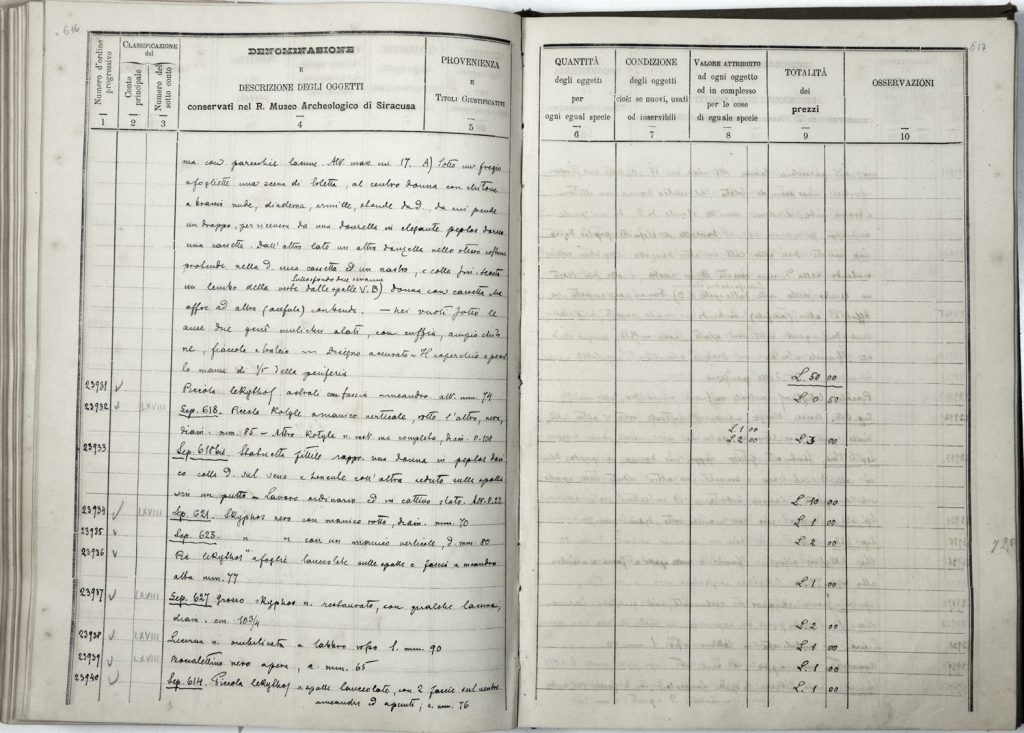 616
Numero d'ordine progressivo
CLASSIFICAZIONE
del
Conto principale
Numero del sotto conto
DENOMINAZIONE
E
DESCRIZIONE DEGLI OGGETTI
conservati nel R. Museo Archeologico di Siracusa
PROVENIENZA
E
TITOLI GIUSTIFICATIVI
1 2 3 4 5
ma con parecchie lacune. Alt. mass. cm. 17. A) Sotto un fregio
a fogliette una scena di toletta, al centro donna con chitone
a braccia nude, diadema, armille, stende la d., da cui pende
un drappo, per ricevere da una donzella in elegante peplos dorico
una cassetta. Dall'altro lato un altra donzella nello stesso costume
protende nella d. una cassetta ed un nastro, e colla sin. scosta
un lembo della veste dalle spalle B) donna con cassetta che
offre ad altra (acefala) con benda. — nei vuoti sotto le
anse due genî muliebri alati, con cuffia, ampio chito
ne, fiaccola e Disegno accurato — Il coperchio è
lo manca di 1/5 della periferia
23931 Piccola lekythos astrali con fascia meandro. alt. mm. 74
23932 LXVIII Sep. 618. Piccola Kotyle a manico verticale, rotto l'altro, nera,
diam. mm. 85 — Altra Kotyle n. rest. ma completa, diam. 0.108
23933 Sep. 618 bis. Statuetta fittile rappr. una donna in peplos dori
co colla d. sul seno e tenente coll'altra seduto sulla spalla
sin un putto — Lavoro ordinario ed in cattivo stato. Alt. 0.22
23934 LXVIII Sep. 621. Skyphos nero con manico rotto, diam. mm. 70
23935 Sep. 623. " " con un manico verticale, d. mm. 80
23936 Pic. lekythos a foglie lanceolate sulle spalle e fascia a meandro
alta mm. 77
23937 LXVIII Sep. 627 Grosso skyphos n. restaurato, con qualche lacuna,
diam. cm. 10 3/4
23938 LXVIII Lucerna n. umbelicata a labbro l. mm. 90
23939 LXVIII Boccalettino nero a pera, a. mm. 65
23940 Sep. 614. Piccola lekythos a spalle lanceolate, con 2 fascie sul ventre
meandri e a punti, a. mm. 76
617
QUANTITÀ
degli oggetti
per
ogni egual specie
CONDIZIONE
degli oggetti
cioè: se nuovi, usati
od inservibili
VALORE ATTRIBUITO
ad ogni oggetto
ed in complesso
per le cose
di eguale specie
TOTALITÀ
dei
prezzi
OSSERVAZIONI
6 7 8 9 10
L. 50 00
L. 0 50
L. 1 00
L. 2 00 L. 3 00
L. 10 00
L. 1 00
L. 2 00
L. 1 00
L. 2 00
L. 1 00
L. 1 00
L. 1 00